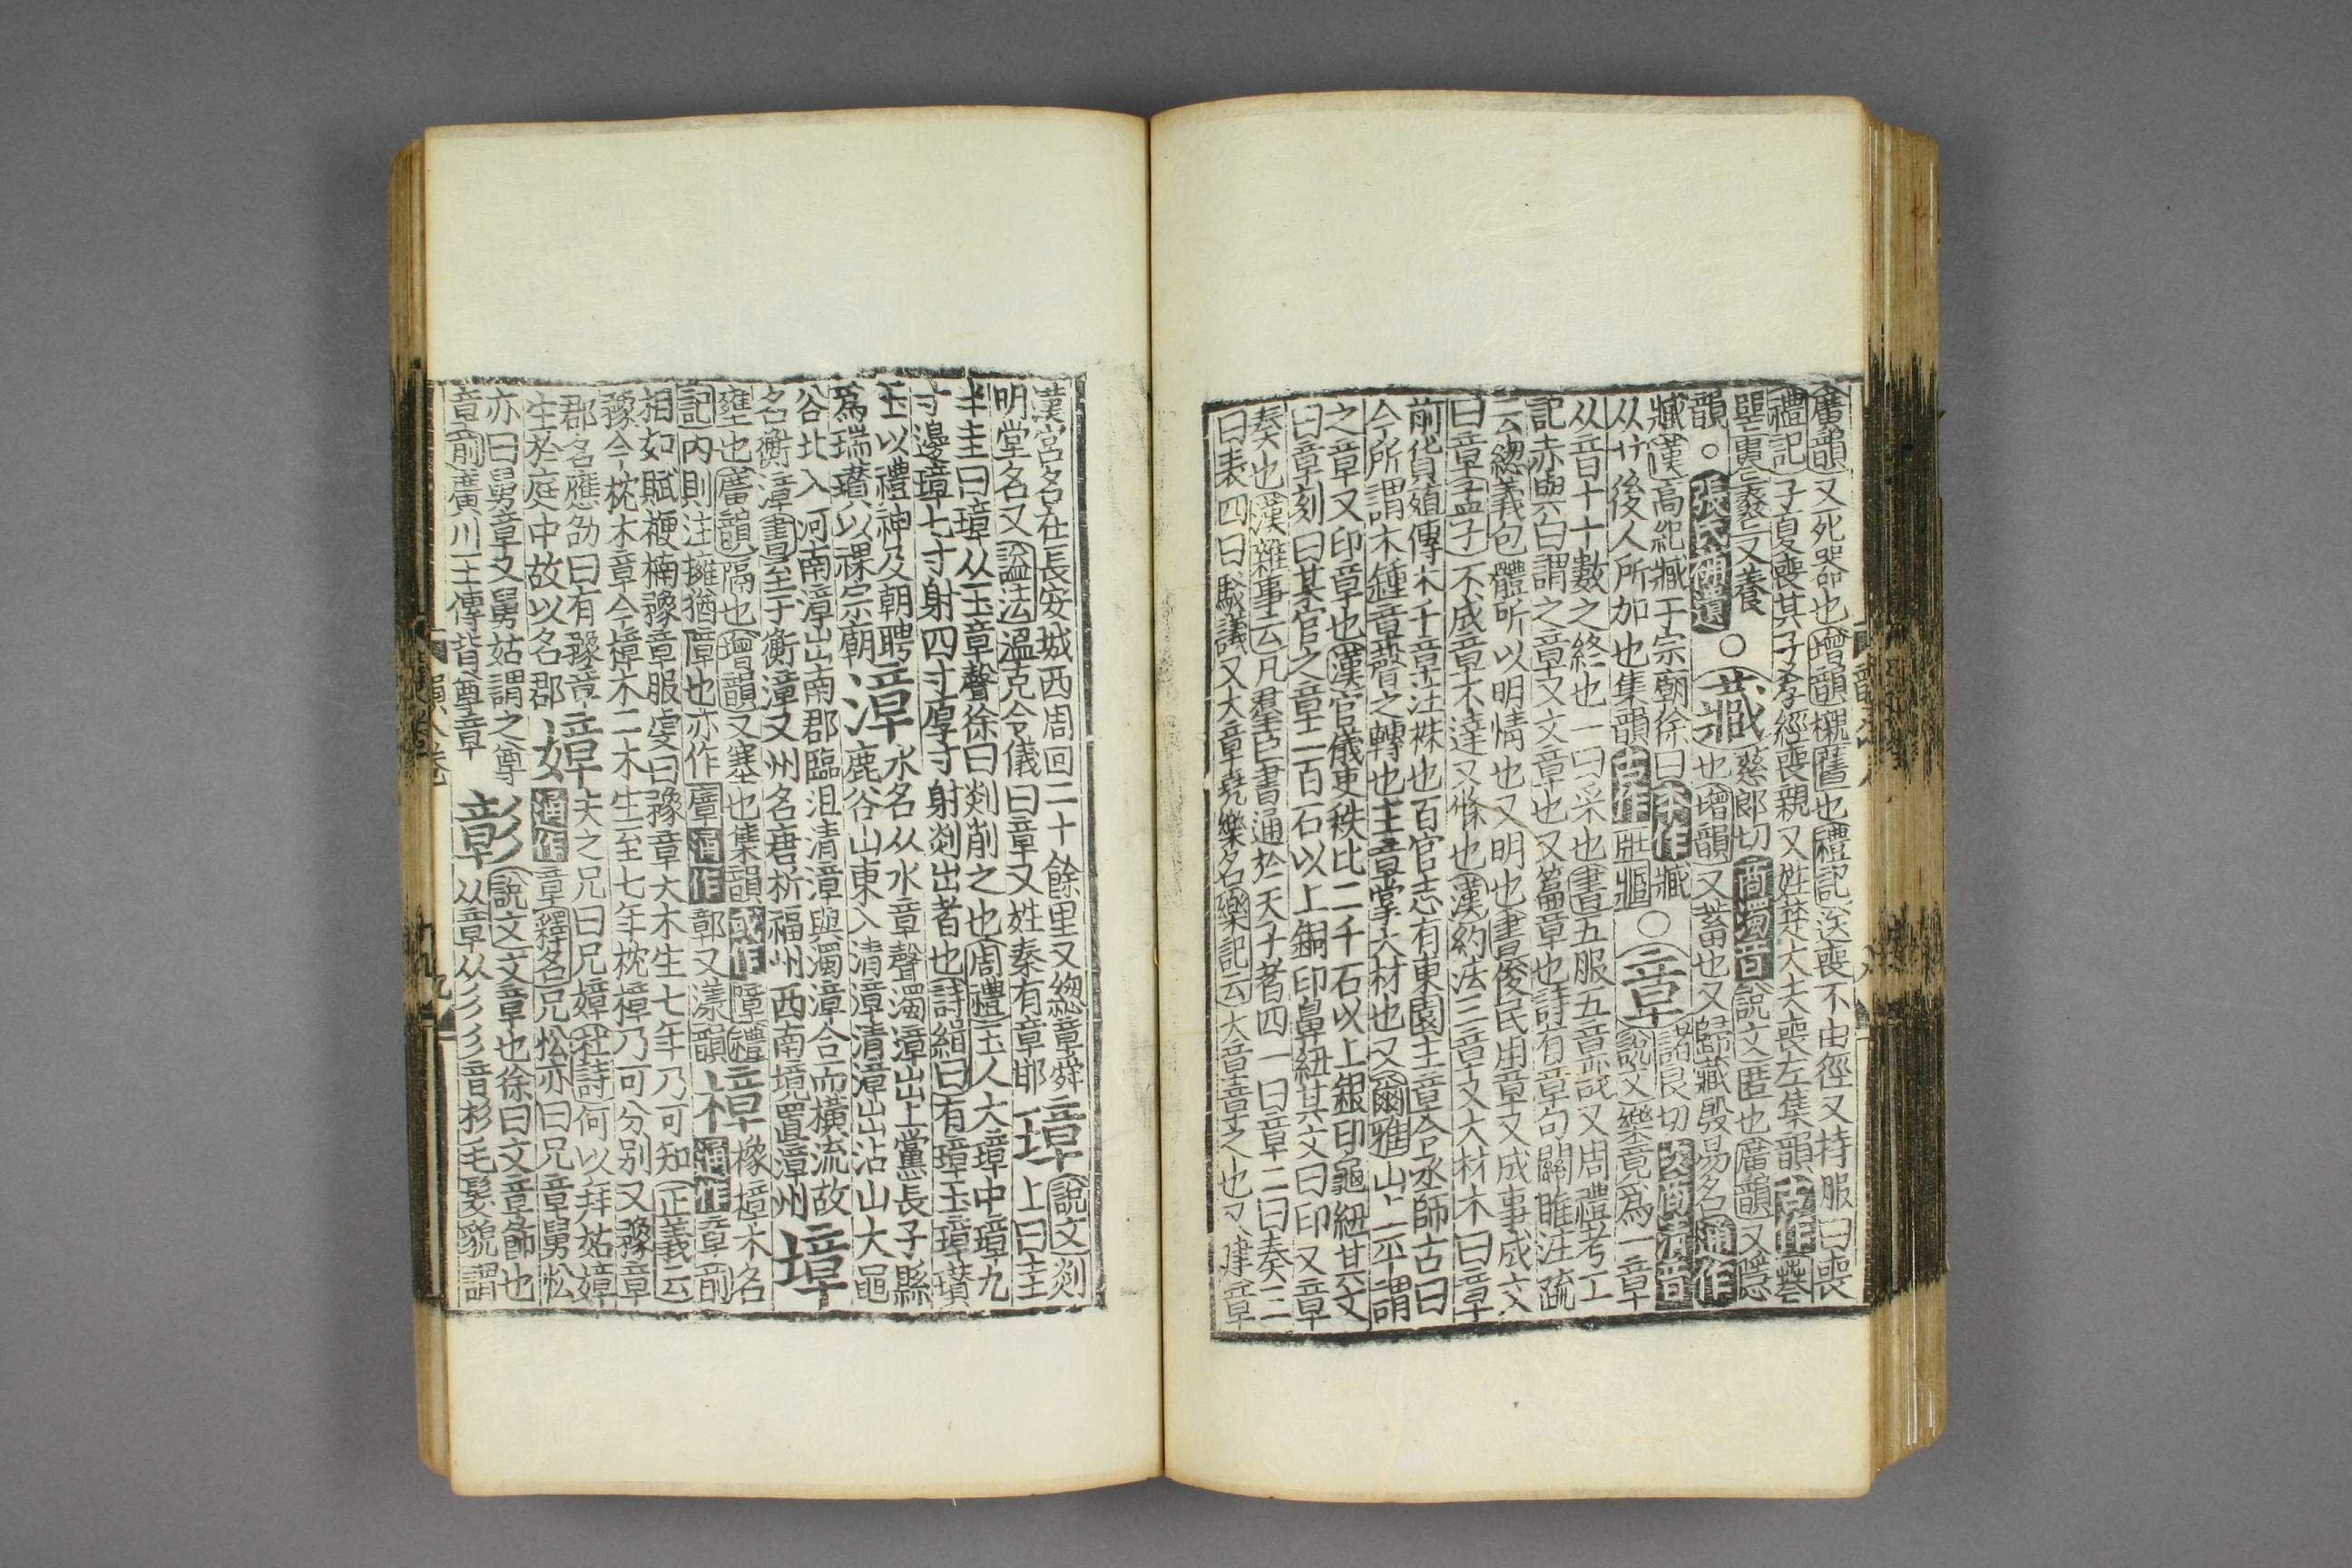 廣韻又死喪也增韻櫬匶也禮記送喪不由徑又持服曰喪
禮記子夏喪其子孝經喪親又姓楚大夫喪左集韻古作
又養
韻○○藏慈郎切商濁音說文匿也廣韻又隱
也增韻又蓄也又歸藏殷易名通作
臧漢高紀臧于宗廟徐曰本作臧○章諸良切次商清音
从艸後人所加也集韻古作說文樂竟爲一章
从音十十數之終也一曰采也書五服五章哉又周禮考工
記赤與白謂之章又文章也又篇章也詩有章句關雎注疏
云總義包體所以明情也又明也書俊民用章又成事成文
曰章孟子不成章不達又條也漢約法三章又大材木曰章
前貨殖傳木千章注株也百官志有東園主章令丞師古曰
今所謂木鍾章聲之轉也主章掌大材也又爾雅山上平謂
之章又印章也漢官儀吏秩比二千石以上銀印龜紐其文
曰章刻曰某官之章二百石以上銅印鼻紐其文曰印又章
奏也漢雜事云凡羣臣書通於天子者四一曰章二曰奏三
曰表四曰駮議又大章堯樂名樂記云大章章之也又建章
漢宮名在長安城西周回二十餘里又總章舜
明堂名又諡法溫克令儀曰章又姓秦有章邯璋說文剡上曰圭
半圭曰璋从玉章聲徐曰剡削之也周禮玉人大璋中璋九
寸邊璋七寸射四寸厚寸射剡出者也詩緝曰有璋玉璋瓚
玉以禮神及朝聘漳水名从水章聲濁漳出上黨長子縣
爲瑞瓚以祼宗廟鹿谷山東入清漳清漳出沾山大黽
谷北入河南漳出南郡臨沮清漳與濁漳合而橫流故
名衡漳書至于衡漳又州名唐析福州西南境置漳州墇
壅也廣韻隔也增韻又塞也集韻或作障禮
記內則注擁猶障也亦作廧通作鄣又漾韻樟橡樟木名通作章前
相如賦楩楠豫章服虔曰豫章大木生七年乃可知正義云
豫今枕木章今樟木二木生至七年枕樟乃可分別又豫章
郡名應劭曰有豫章
生於庭中故以名郡嫜夫之兄曰兄嫜杜詩何以拜姑嫜
通作章釋名兄忪亦曰兄章舅忪
亦曰舅章又舅姑謂之尊
章前廣川王傳背尊章彰說文文章也徐曰文章飾也
从章从彡彡音杉毛髮貌謂